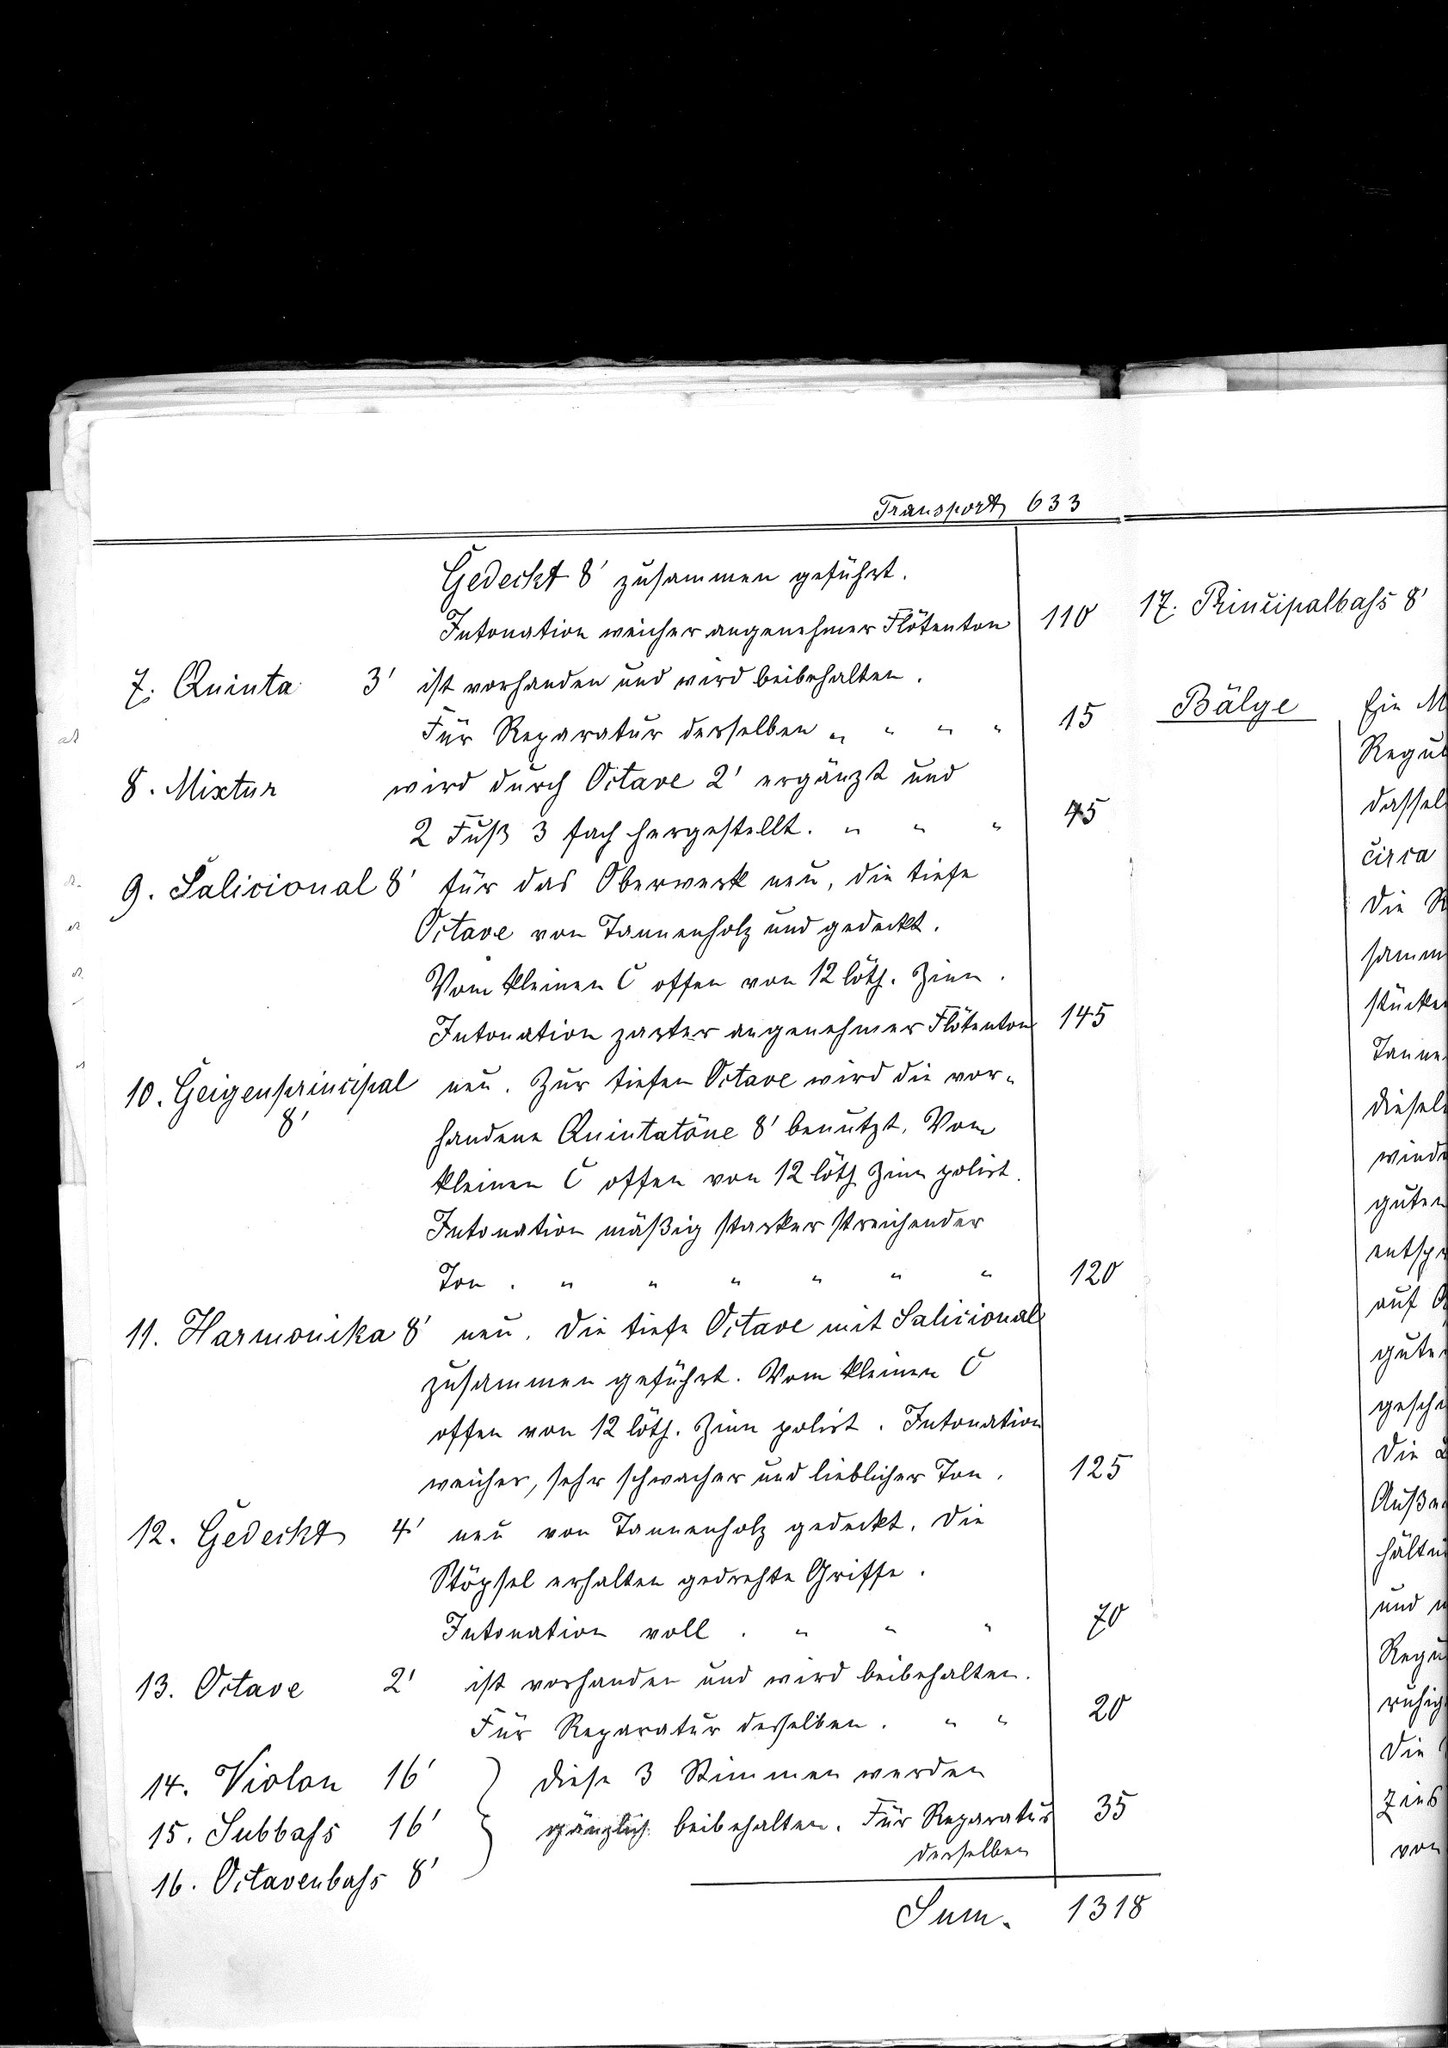 Transport 633
Gedeckt 8' zusammen geführt.
Intonation weicher angenehmer Flötenton 110
7. Quinta 3' ist vorhanden und wird beibehalten.
Für Reparatur derselben „ „ „ „ 15
8. Mixtur wird durch Octave 2' ergänzt und
2 Fuß 3 fach hergestellt. „ „ „ 45
9. Salicional 8' für das Oberwerk neu, die tiefe
Octave von Tannenholz und gedeckt.
Vom kleinen C offen von 12 löth. Zinn.
Intonation zarter angenehmer Flötenton 145
10. Geigenprincipal neu. Zur tiefen Octave wird die vor-
8'
handene Quintatöne 8' benutzt. Vom
kleinen C offen von 12 löth Zinn polirt.
Intonation mäßig starker streichender
Ton. „ „ „ „ „ „ 120
11. Harmonika 8' neu. Die tiefe Octave mit Salicional
zusammen geführt. Vom kleinen C
offen von 12 löth. Zinn polirt. Intonation
weicher, sehr schwacher und lieblicher Ton. 125
12. Gedeckt 4' neu von Tannenholz gedeckt. Die
Stöpsel erhalten gedrehte Griffe.
Intonation voll. „ „ „ 70
13. Octave 2' ist vorhanden und wird beibehalten.
Für Reparatur derselben. „ „ 20
14. Violon 16' diese 3 Stimmen werden
15. Subbass 16' gänzlich beibehalten. Für Reparatur 35
derselben
16. Octavenbass 8'
Sum. 1318
17. Principalbass 8'
Bälge Ein
Regul
dassel
circa
Die
samm
stücke
Tanne
diesel
winde
guten
entspr
auf
gute
gesch
Die
Auße
hältn
und
Regu
ruhig
Die
Zins
von